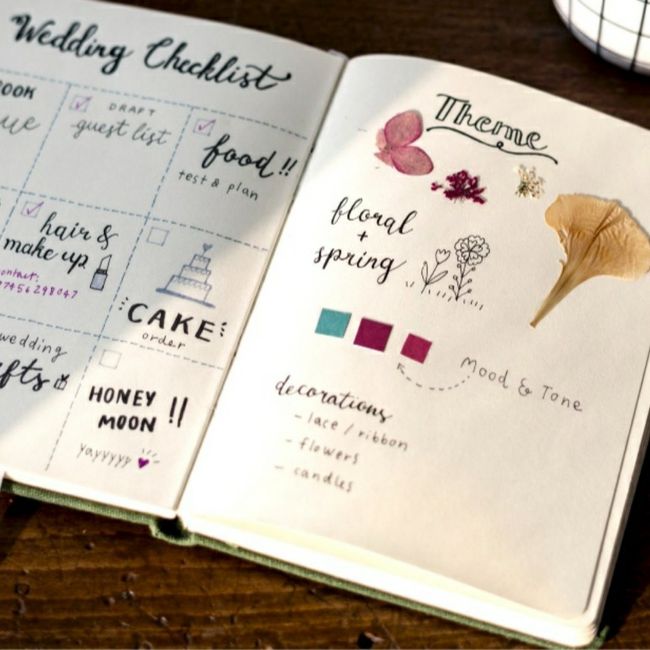 Wedding Checklist
DRAFT
guest list
food!!
test & plan
hair &
make up
contact:
CAKE
order
wedding
HONEY
MOON !!
Yayyyyy
Theme
floral
+
spring
Mood & Tone
decorations
- lace / ribbon
- flowers
- candles